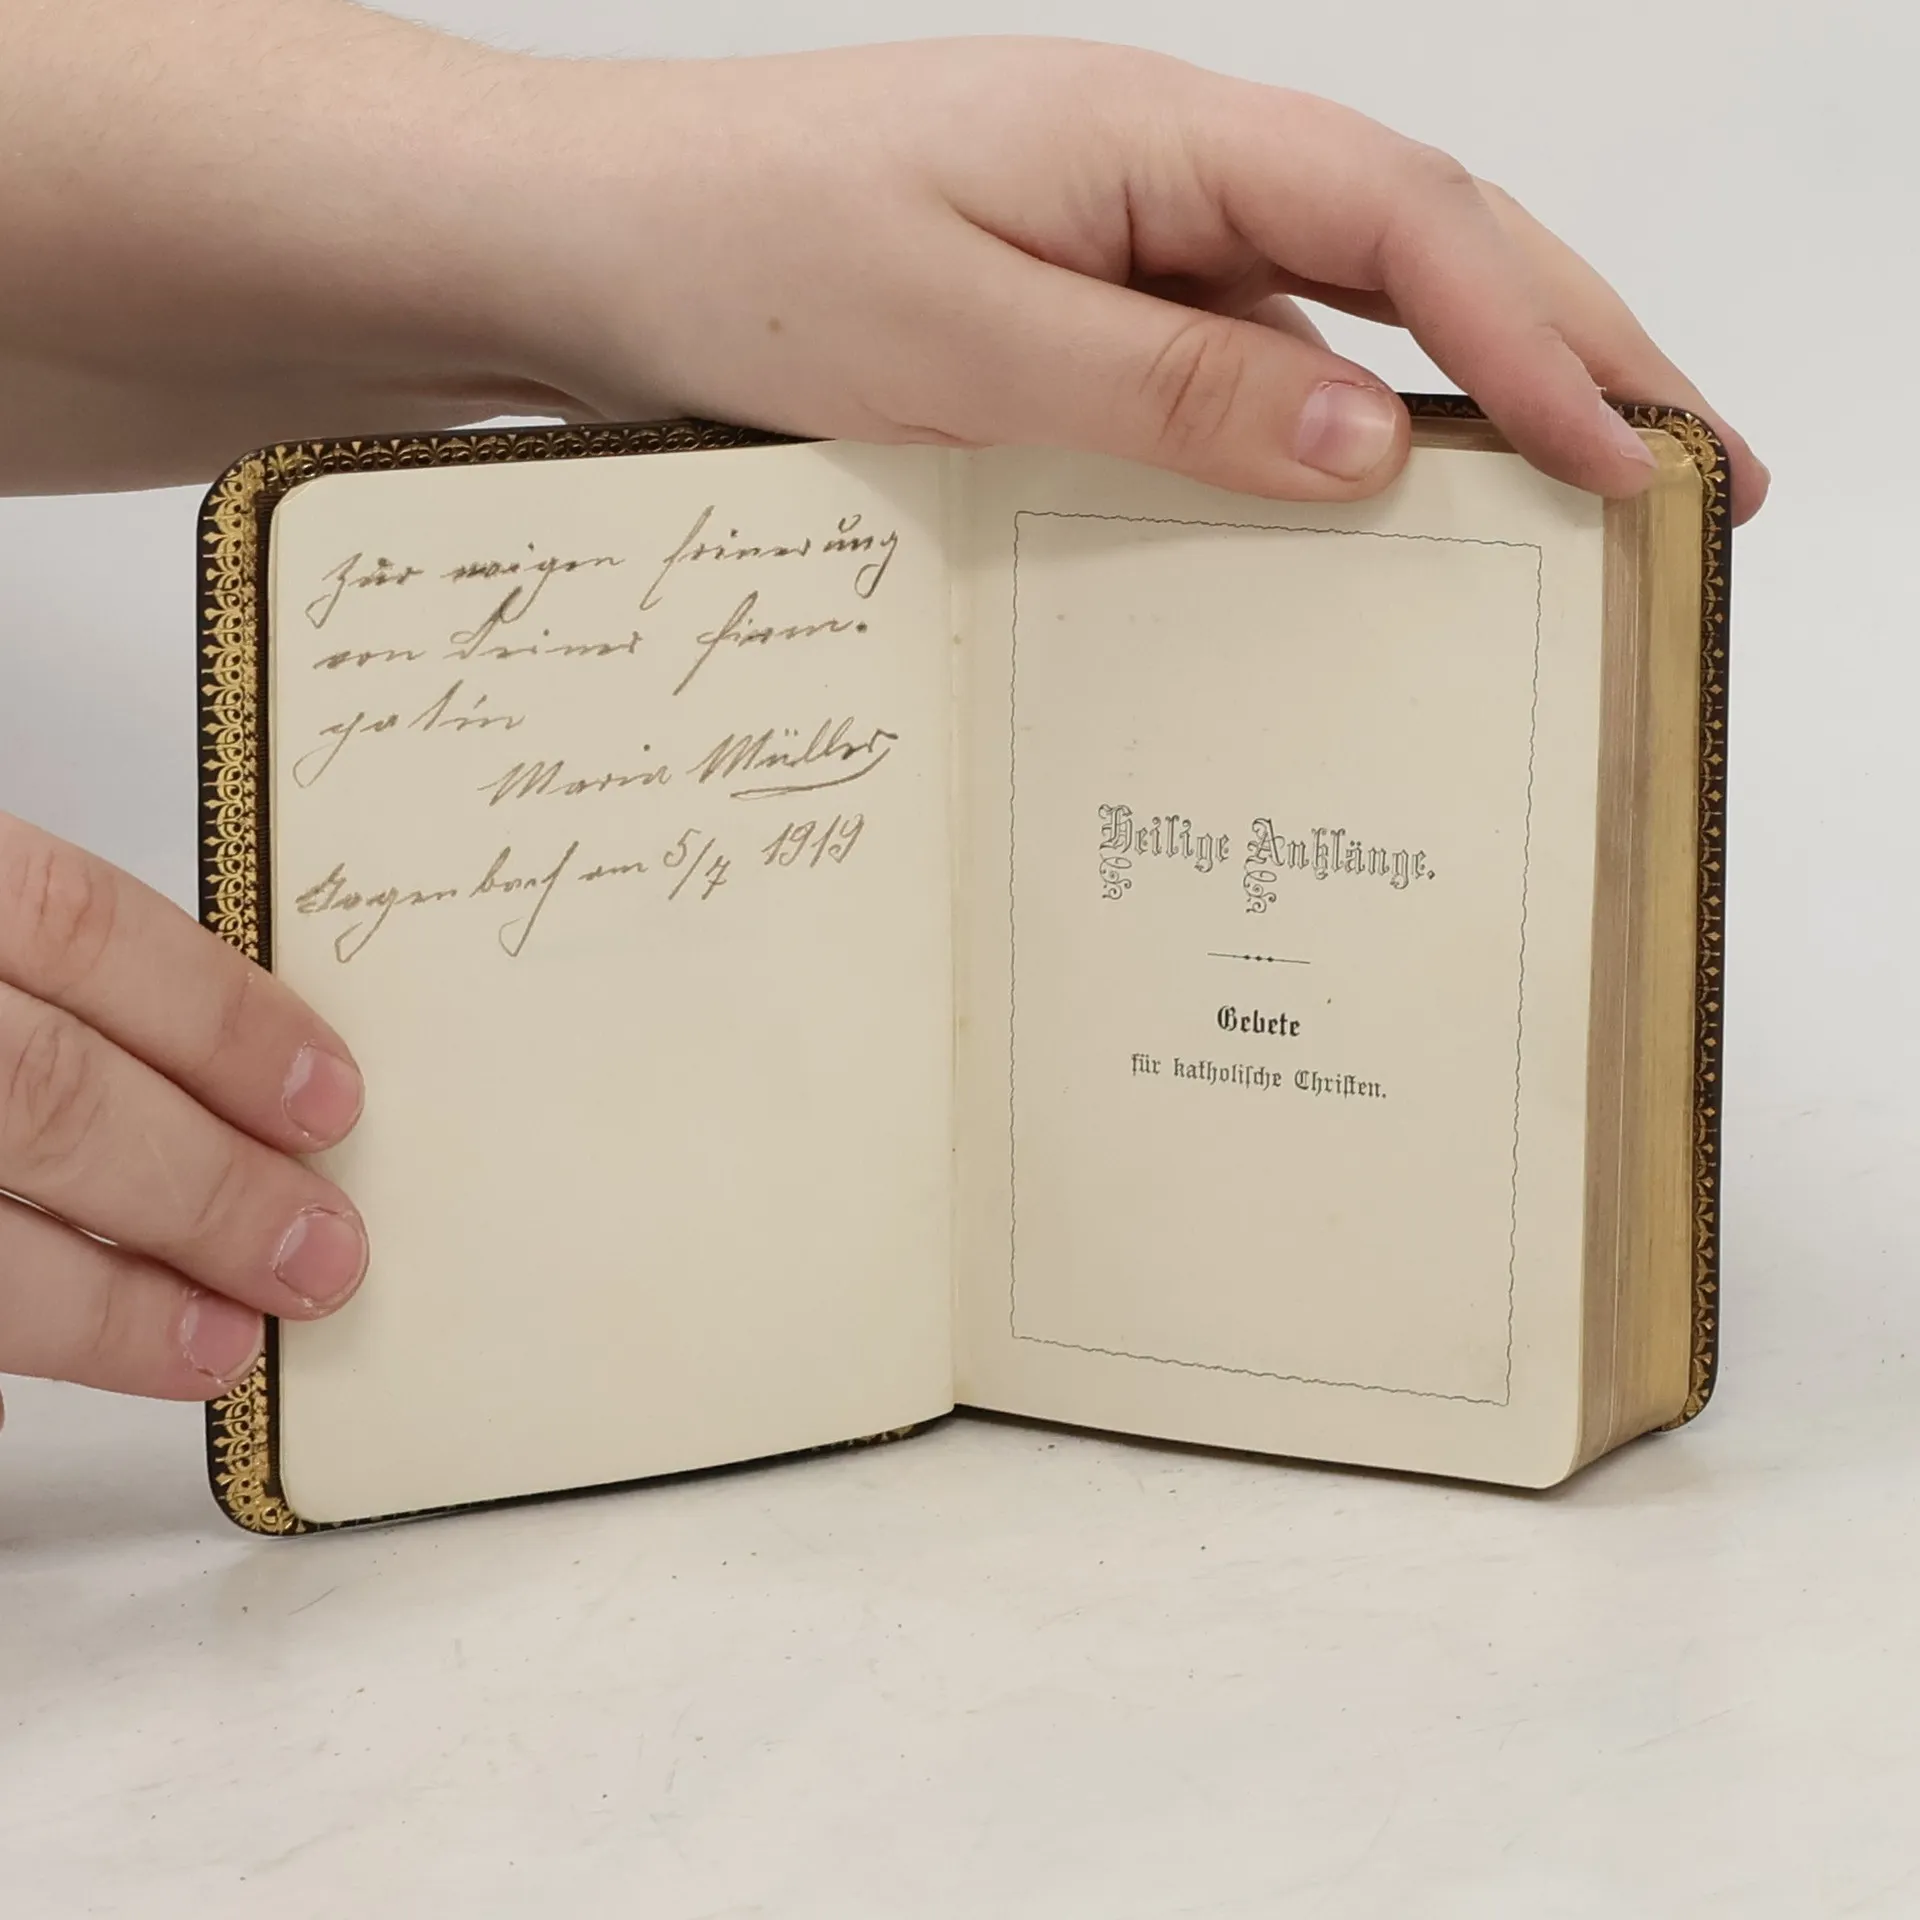 Zur ewigen Erinerung
von Deiner Firm-
gotin
Maria Müller
am 5/7 1919
Heilige Anklänge.
Gebete
für katholische Christen.